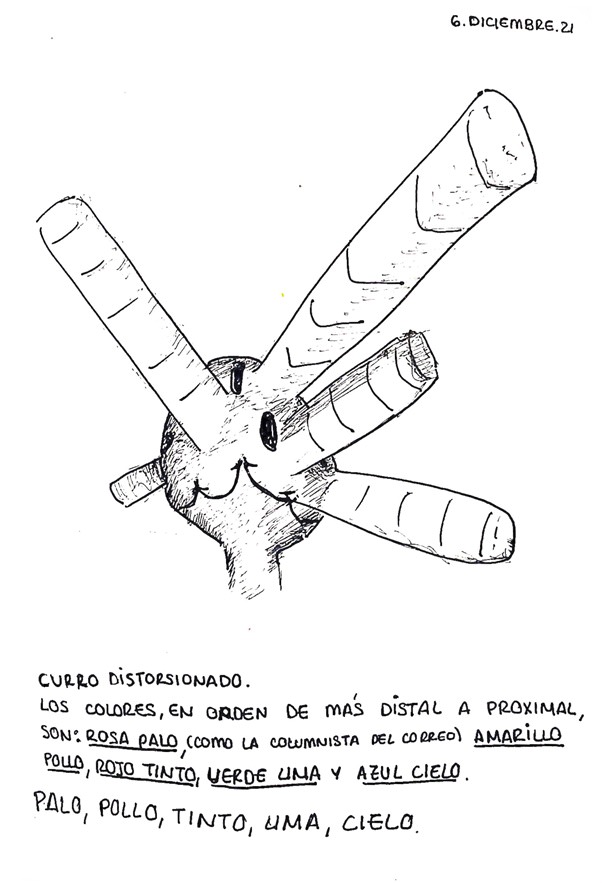 6.DICIEMBRE.21
CURRO DISTORSIONADO.
LOS COLORES, EN ORDEN DE MÁS DISTAL A PROXIMAL,
SON: ROSA PALO, (COMO LA COLUMNISTA DEL CORREO) AMARILLO
POLLO, ROJO TINTO, VERDE LIMA Y AZUL CIELO.
PALO, POLLO, TINTO, LIMA, CIELO.